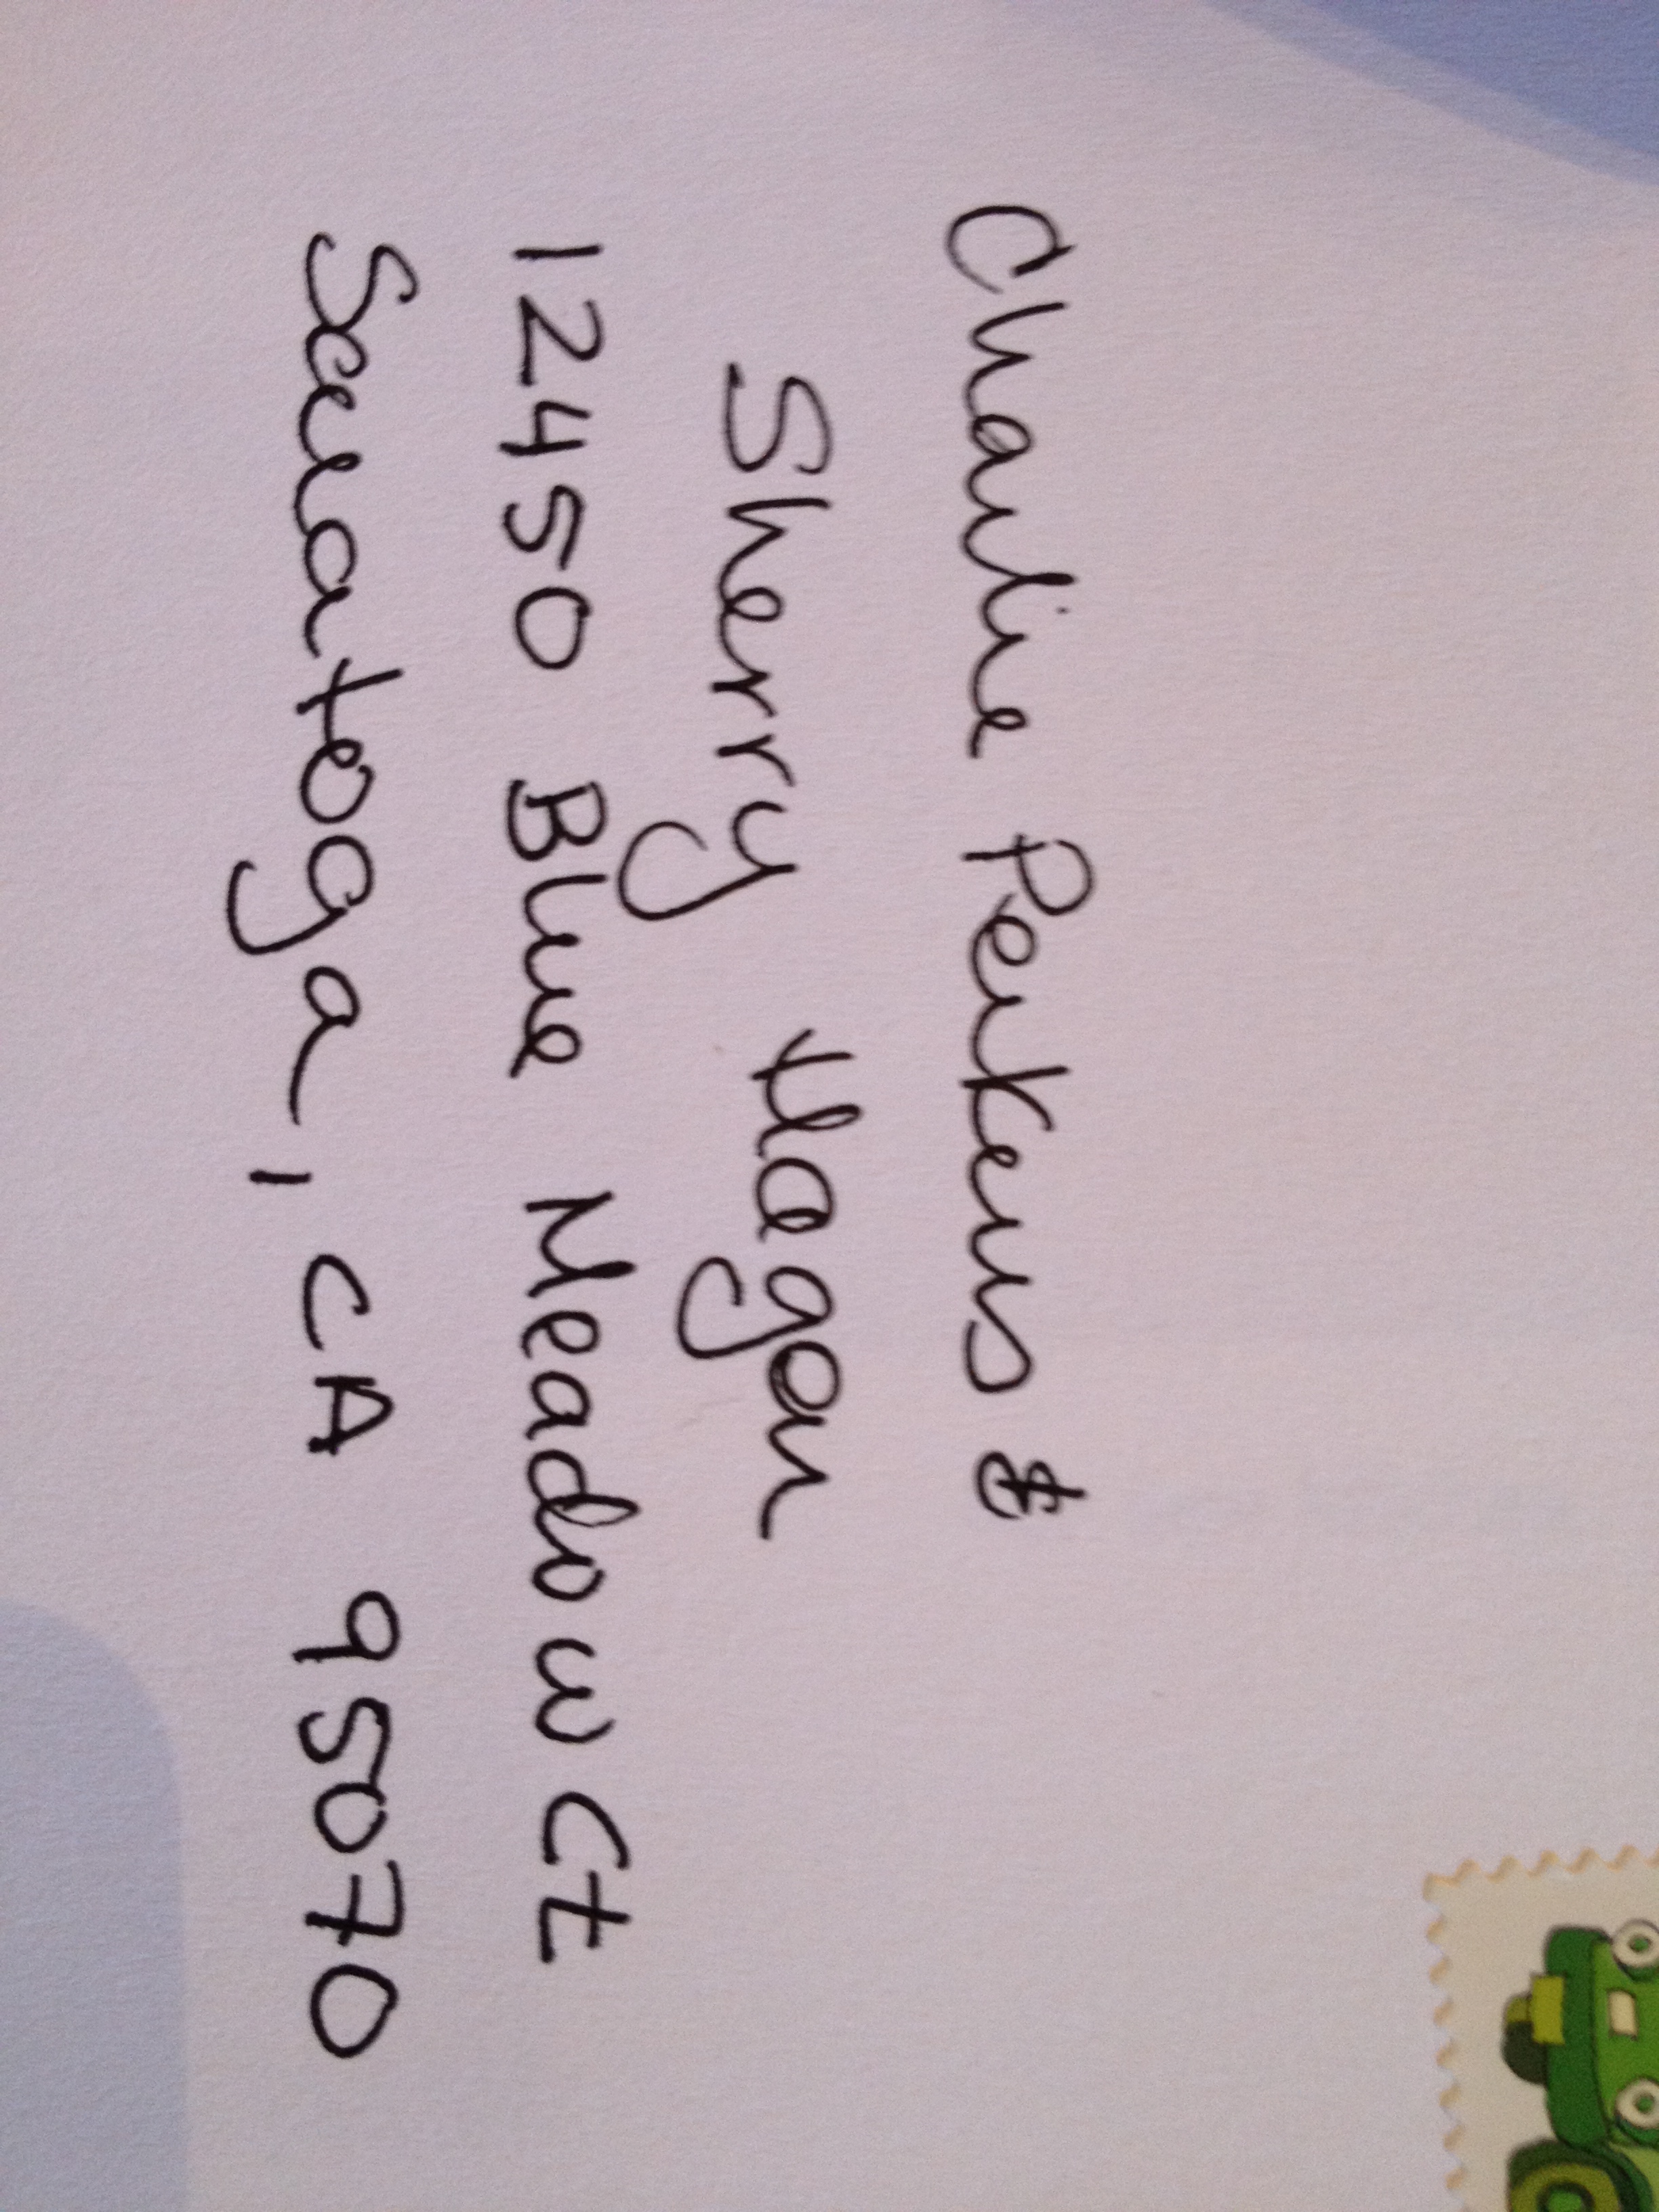 Charlie Perkins &
Sherry Hagen
12450 Blue Meadow Ct
Saratoga, CA 95070